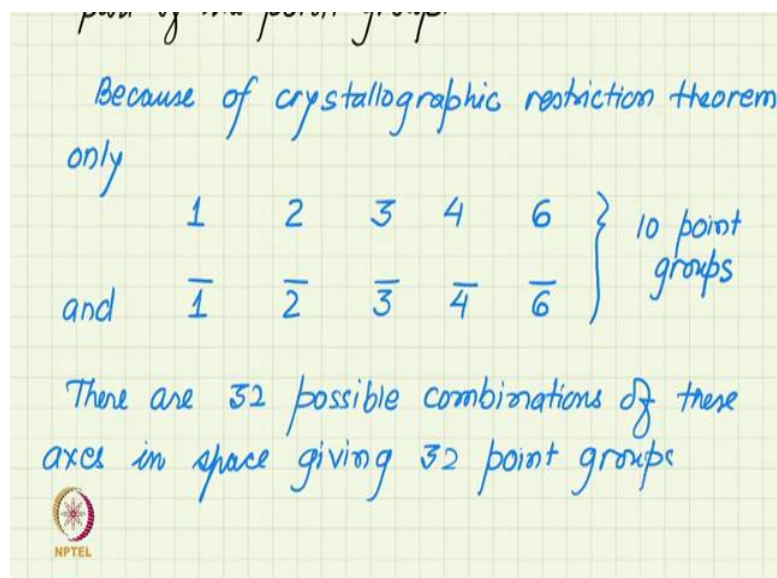 Because of crystallographic restriction theorem
only
1 2 3 4 6 } 10 point
groups
and 1̅ 2̅ 3̅ 4̅ 6̅
There are 32 possible combinations of these
axes in space giving 32 point groups
NPTEL